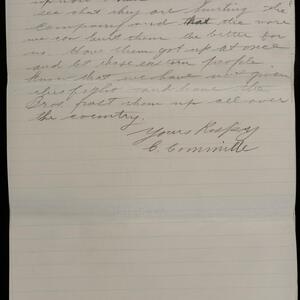 see that they are hurting the
and that the more
we can hurt them the better for
us. Have them got up at once
and let these our own people
know that we have not given
up and have the
Bros. post them up all over
the country.
Yours Respy
C. Committe